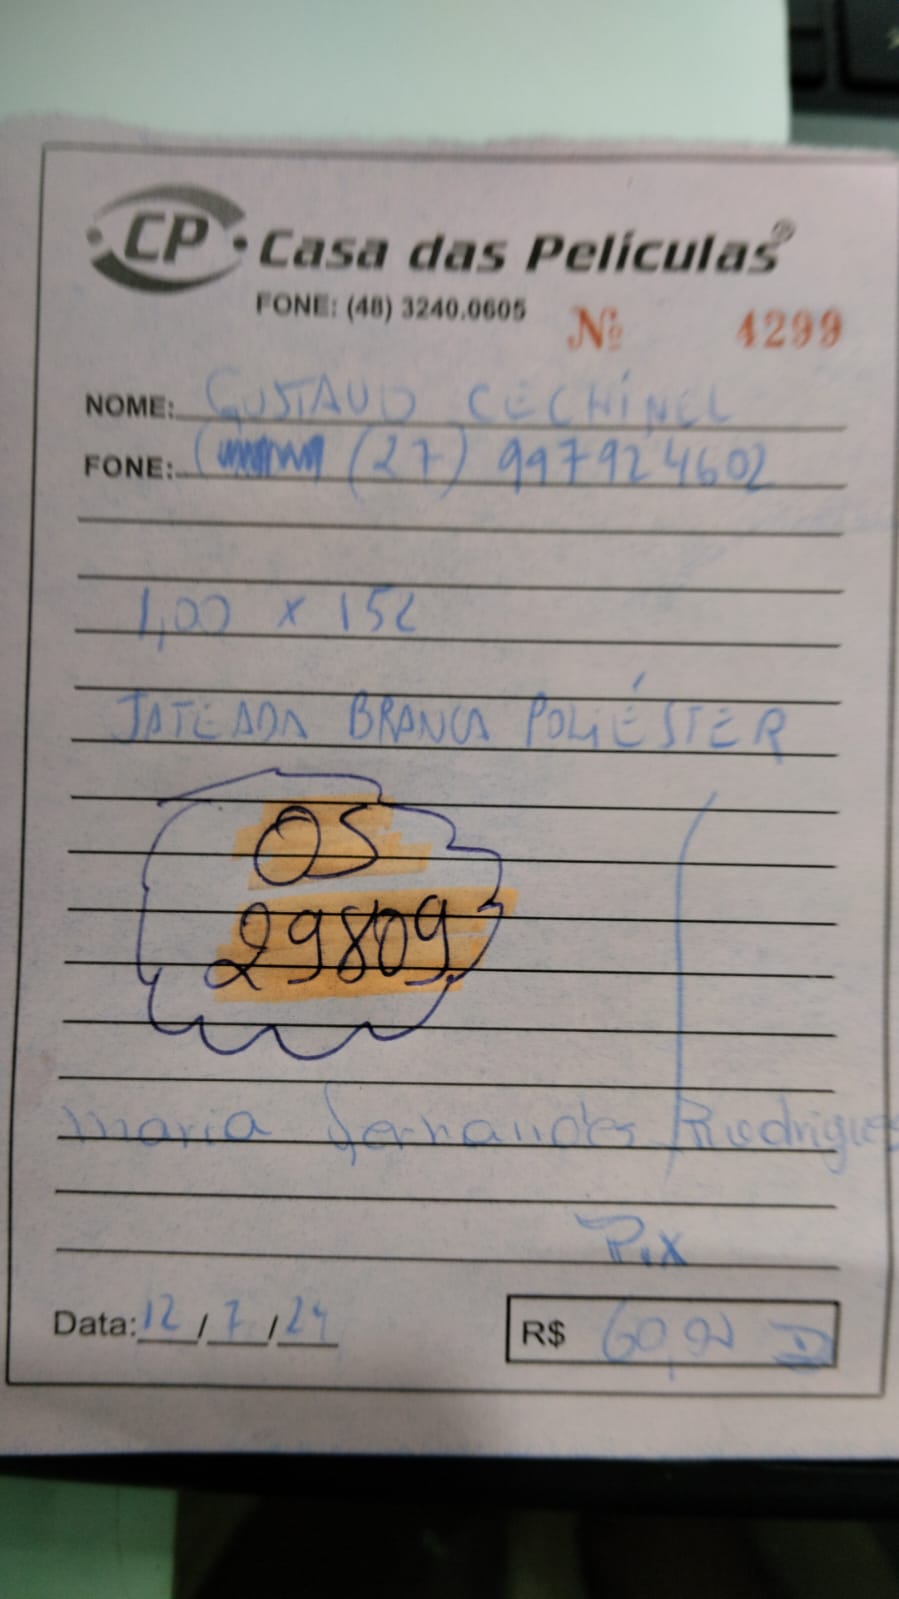 CP Casa das Películas®
FONE: (48) 3240.0605
Nº 4299
NOME: GUSTAVO CECHINEL
FONE: (27) 997924602
1,00 x 152
JATEADA BRANCA POLIÉSTER
OS
29809
Maria Fernandes Rodrigues
Pix
Data: 12/7/24
R$ 60,00